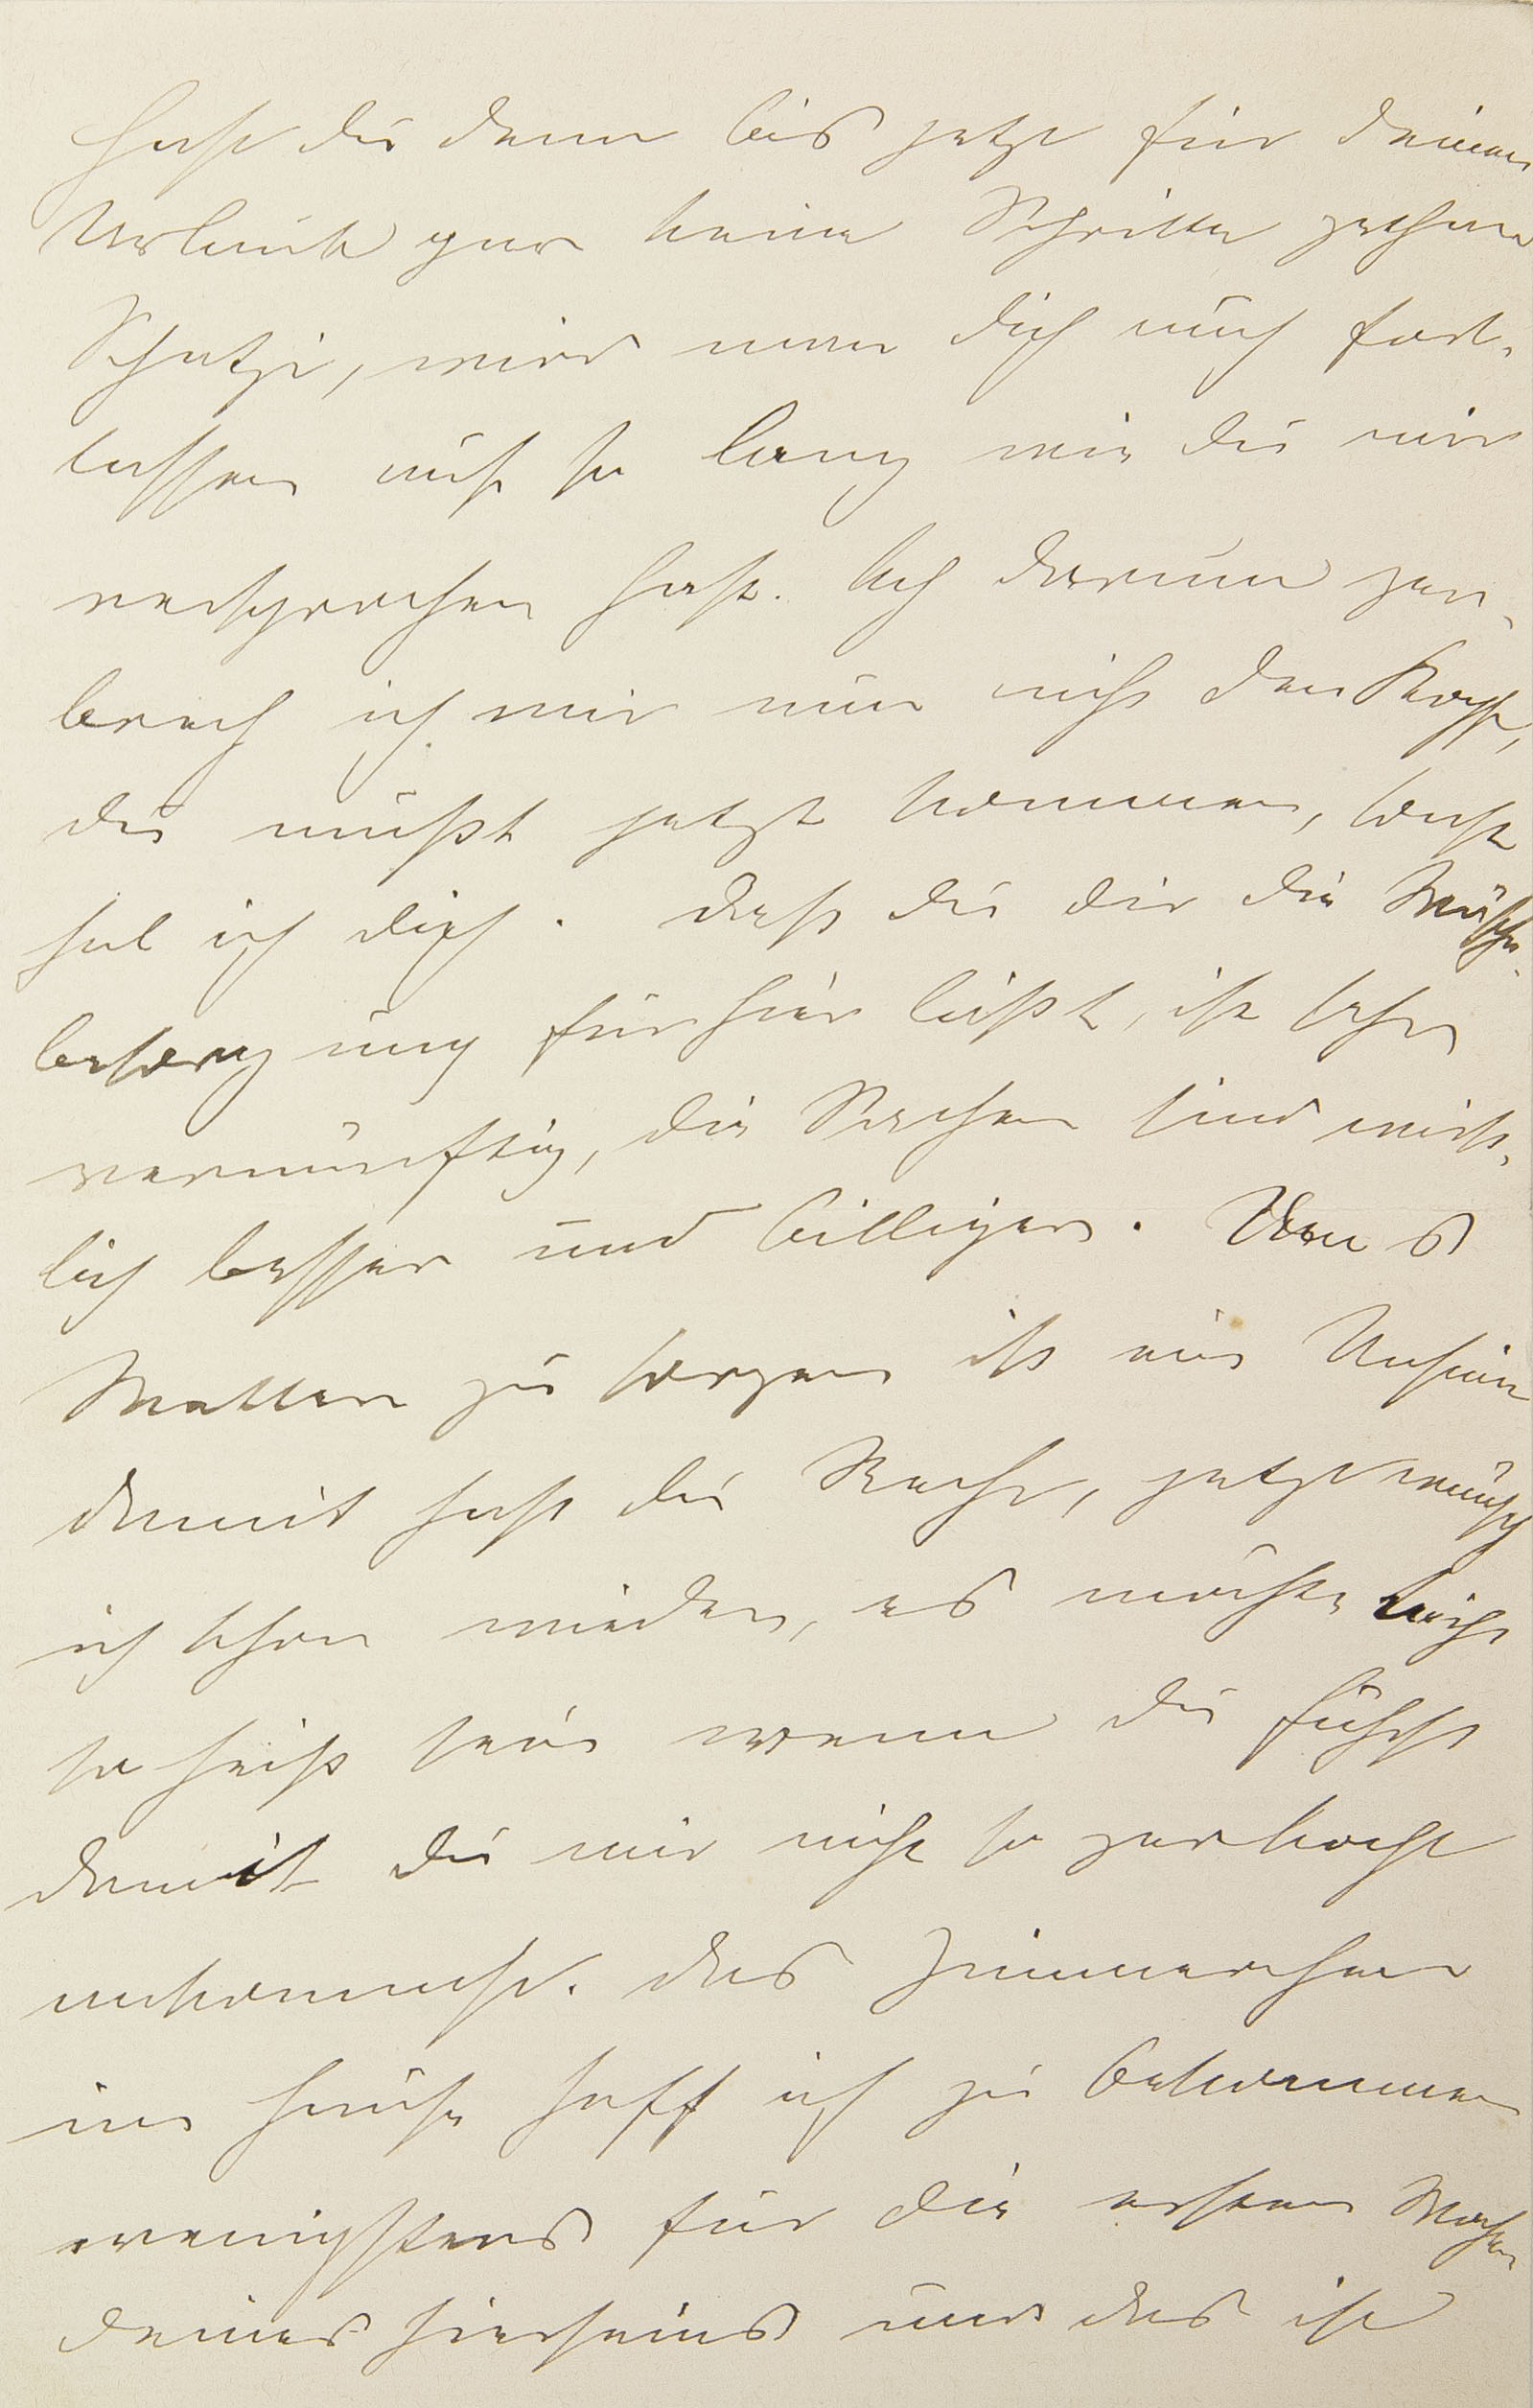 Hast du denn bis jetzt für deinen
Urlaub gar keine Schritte gethan
Schatzi, wird man dich auch fort-
lassen auch so lang wie du mir
versprochen hast. Ach darum zer-
brech ich mir nun nicht den Kopf,
du mußt jetzt kommen, sonst
hol ich dich. Daß du dir die Wäsche-
besorgung für hier läßt, ist sehr
vernünftig, die Sachen sind wirk-
lich besser und billiger. Um's
Wetter zu sorgen ist ein Unsinn
damit hast du Recht, jetzt wünsch
ich schon wieder, es möchte nicht
so heiß sein wenn du fährst
damit du mir nicht so zerkocht
ankommst. Das Zimmerchen
im Hause hoff ich zu bekommen
wenigstens für die ersten Wochen
deines Hierseins und das ist